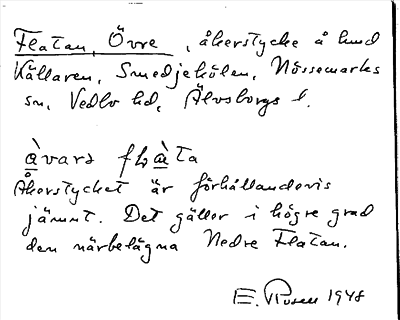 Flatan, Övre, åkerstycke å lund
Källaren, Smedjekölen, Nössemarks
sn, Vedbo hd, Älvsborgs l.
åvarə flàta
Åkerstycket är förhållandevis
jämnt. Det gäller i högre grad
den närbelägna Nedre Flatan.
E. Rosell 1948